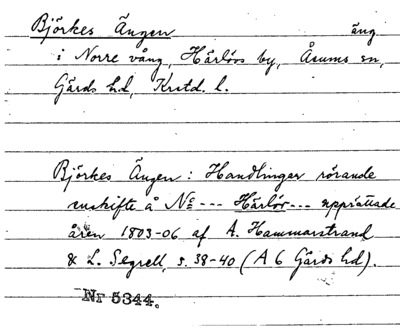 Björkes Ängen äng
i Norre vång, Härlövs by, Åsums sn,
Gärds hd, Krstd. l.
Björkes Ängen: Handlingar rörande
enskifte å No --- Härlöv --- upprättade
åren 1803-06 af A. Hammarstrand
& L. Segrell, s. 38-40 (A 6 Gärds hd).
Nr 5344.